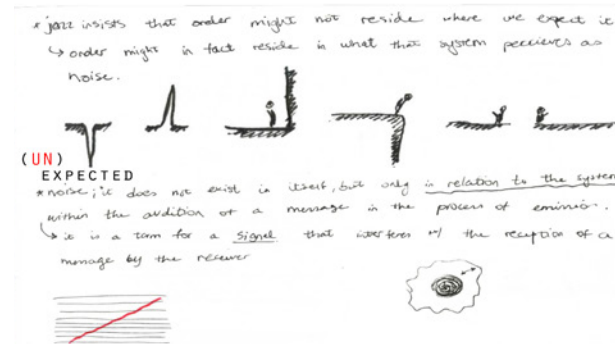 * jazz insists that order might not reside where we expect it
↳ order might in fact reside in what that system percieves as
noise.
(UN)
EXPECTED
* noise; it does not exist in itself, but only in relation to the system
within the audition of a message in the process of emission.
↳ it is a term for a signal that interferes w/ the reception of a
message by the receiver